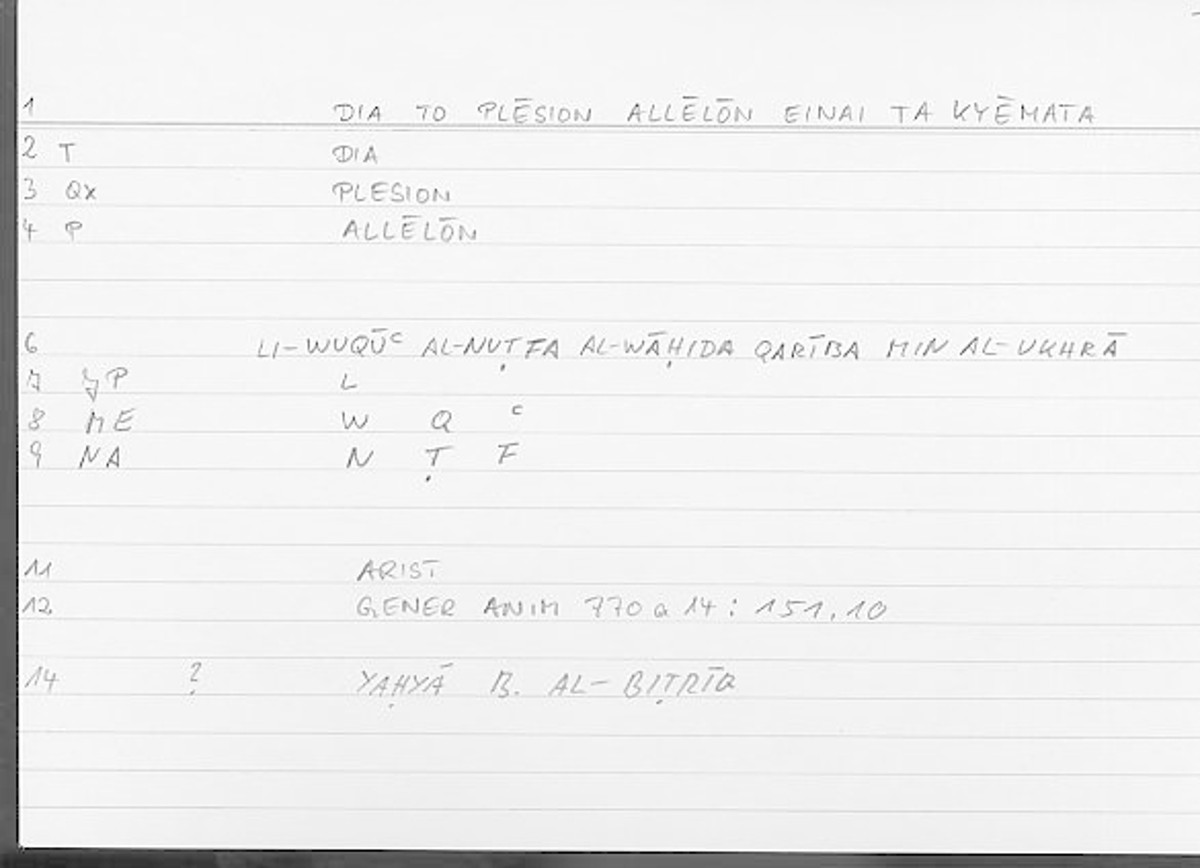 1 DIA TO PLĒSION ALLĒLŌN EINAI TA KYĒMATA
2 T DIA
3 Qx PLESION
4 P ALLĒLŌN
6 LI-WUQŪᶜ AL-NUṬFA AL-WĀḤIDA QARĪBA MIN AL-UKHRĀ
7 P L
8 ME W Q ᶜ
9 NA N Ṭ F
11 ARIST
12 GENER ANIM 770 a 14 : 151,10
14 ? YAḤYĀ B. AL-BIṬRĪQ